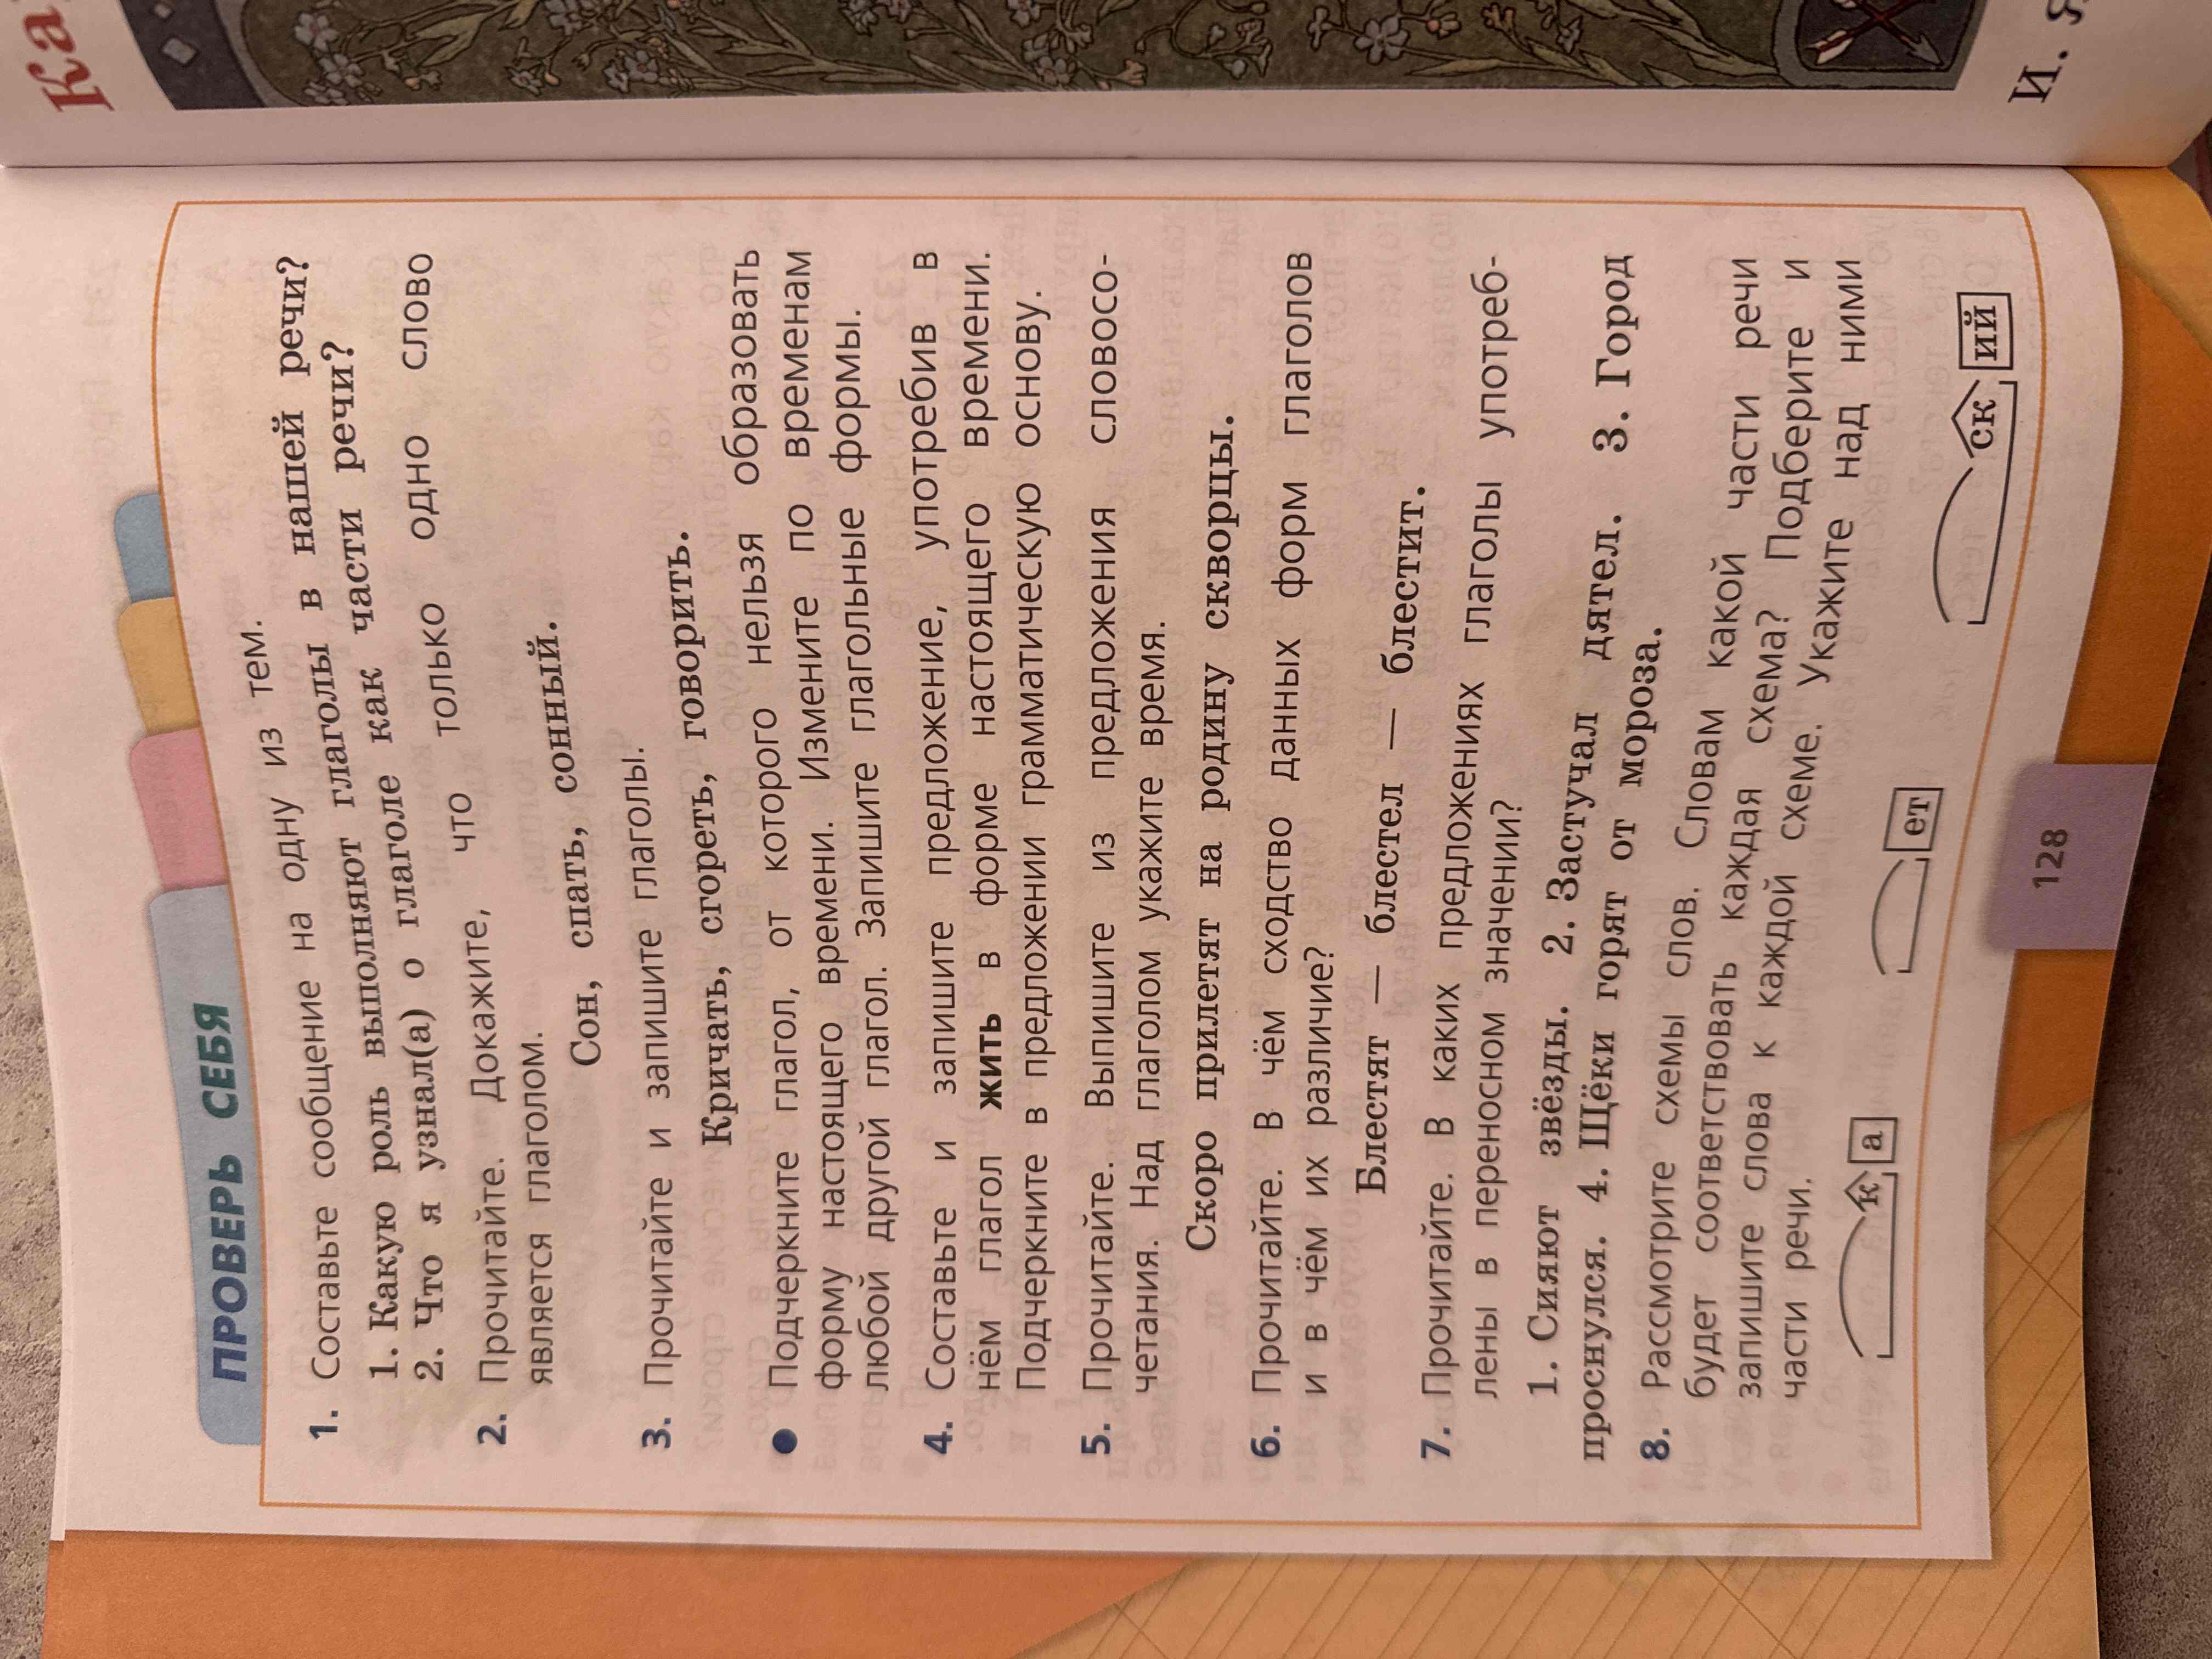 ПРОВЕРЬ СЕБЯ
1. Составьте сообщение на одну из тем.
1. Какую роль выполняют глаголы в нашей речи?
2. Что я узнал(а) о глаголе как части речи?
2. Прочитайте. Докажите, что только одно слово
является глаголом.
Сон, спать, сонный.
3. Прочитайте и запишите глаголы.
Кричать, сгореть, говорить.
● Подчеркните глагол, от которого нельзя образовать
форму настоящего времени. Измените по временам
любой другой глагол. Запишите глагольные формы.
4. Составьте и запишите предложение, употребив в
нём глагол жить в форме настоящего времени.
Подчеркните в предложении грамматическую основу.
5. Прочитайте. Выпишите из предложения словосо-
четания. Над глаголом укажите время.
Скоро прилетят на родину скворцы.
6. Прочитайте. В чём сходство данных форм глаголов
и в чём их различие?
Блестят — блестел — блестит.
7. Прочитайте. В каких предложениях глаголы употреб-
лены в переносном значении?
1. Сияют звёзды. 2. Застучал дятел. 3. Город
проснулся. 4. Щёки горят от мороза.
8. Рассмотрите схемы слов. Словам какой части речи
будет соответствовать каждая схема? Подберите и
запишите слова к каждой схеме. Укажите над ними
части речи.
к а ет ск ий
128
Ка
И. Я